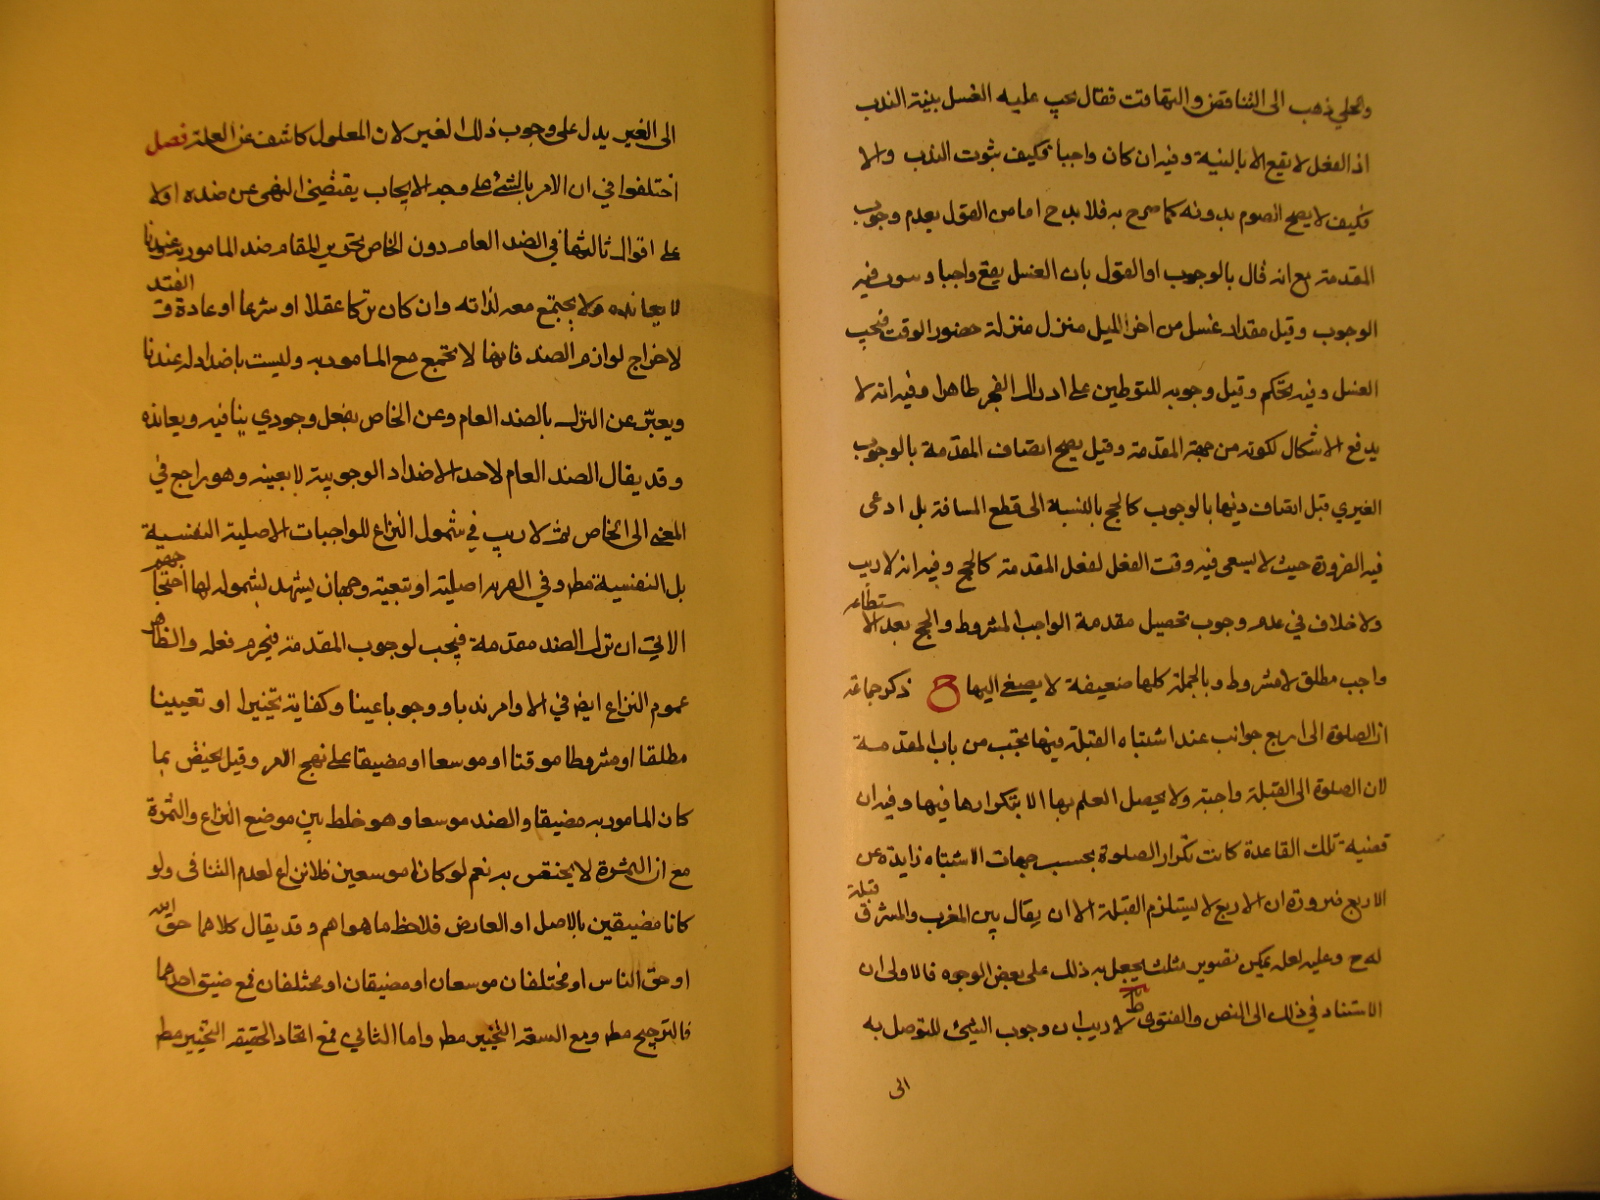 والحلي ذهب الى التناقض والتهافت فقال يجب عليه الغسل بنية الندب
اذ الفعل لا يقع الا بالنية وفيه ان كان واجبا فكيف بثبوت الندب والا
فكيف لا يصح الصوم بدونه كما صرح به فلا بد ح اما من القول بعدم وجوب
المقدمة مع انه قال بالوجوب او القول بان الغسل يقع واجبا وسوف فيه
الوجوب وقيل مقدار غسل من اخر الليل منزل منزلة حضور الوقت فيجب
الغسل وفيه تحكم وقيل وجوبه للتوطين على ادراك الفجر طاهرا وفيه انه لا
يدفع الاشكال لكونه من جهة المقدمة وقيل يصح اتصاف المقدمة بالوجوب
الغيري قبل اتصاف ذيها بالوجوب كالحج بالنسبة الى قطع المسافة بل ادعى
فيه الضرورة حيث لا يسعى فيه وقت الفعل لفعل المقدمة كالحج وفيه انه لا ريب
ولا خلاف في عدم وجوب تحصيل مقدمة الواجب المشروط والحج بعد الاستطاعه
واجب مطلق لا مشروط وبالجملة كلها ضعيفة لا يصغى اليها ح ذكر جماعة
ان الصلوة الى اربع جوانب عند اشتباه القبلة فيها تجب من باب المقدمة
لان الصلوة الى القبلة واجبة ولا يحصل العلم بها الا بتكرارها فيها وفيه ان
قضية تلك القاعدة كانت تكرار الصلوة بحسب جهات الاشتباه زايدة عن
الاربع ضرورة ان الاربع لا يستلزم القبلة الا ان يقال بين المغرب والمشرق قبلة
له ح وعليه لعله يمكن تصوير مثلث يحصل به ذلك على بعض الوجوه فالاولى ان
الاستناد في ذلك الى النص والفتوى ط لا ريب ان وجوب الشئ للتوصل به
الى
الى الغير يدل على وجوب ذلك الغير لان المعلول كاشف عن العلة فصل
اختلفوا في ان الامر بالشئ على وجه الايجاب يقتضي النهي عن ضده اولا
على اقوال ثالثها في الضد العام دون الخاص تحرير المقام ضد المامور به عندنا
لا يعانده ولا يجتمع معه لذاته وان كان تركا عقلا او شرعا او عادة
لاخراج لوازم الضد فانها لا تجتمع مع المامور به وليست باضداد له عندنا
ويعبر عن الترك بالضد العام وعن الخاص بفعل وجودي ينافيه ويعانده
وقد يقال الضد العام لاحد الاضداد الوجودية لا بعينه وهو راجع في
المعنى الى الخاص ثم لا ريب في شمول النزاع للواجبات الاصلية النفسية
بل النفسية مطر وفي الغيرية اصلية او تبعية وجهان يشهد لشموله لها احتجاجهم
الاتي ان ترك الضد مقدمة فيجب لوجوب المقدمة فيحرم فعله والظاهر
عموم النزاع ايضا في الاوامر ندبا ووجوبا عينا وكفاية تخييرا او تعيينا
مطلقا او مشروطا موقتا او موسعا او مضيقا على نهج الامر وقيل يختص بما
كان المامور به مضيقا والضد موسعا وهو خلط بين موضع النزاع والثمرة
مع ان الثمرة لا يختص به نعم لو كانا موسعين فلا نزاع لعدم التنافى ولو
كانا مضيقين بالاصل او العارض فلاحظ ما هو اهم وقد يقال كلاهما حق الله
او حق الناس او مختلفان موسعان او مضيقان او مختلفان فمع ضيق احدهما
فالترجيح مطر ومع السعة التخيير مطر واما الثاني فمع اتحاد الحقيقة التخيير مطر